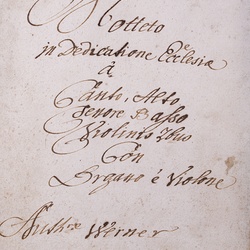 Motteto
in Dedicatione Ecclesiæ
à
Canto, Alto
Tenore Basso
Violinis 2bus
Con
Organo è Violone
Auth:re Werner